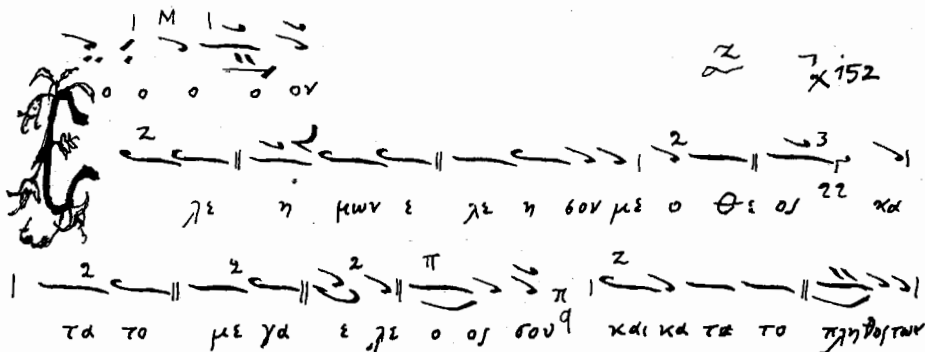 ο ο ο ο ον 152
λε η μων ε λε η σον με ο Θε ος κα
τα το με γα ε λε ο ος σου και κα τα το πλη θος των